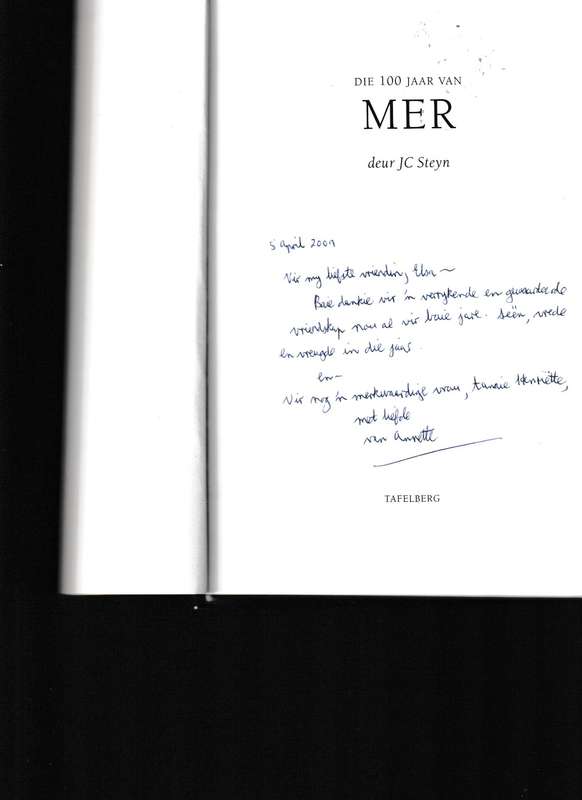 DIE 100 JAAR VAN
MER
deur JC Steyn
5 April 2001
Vir my liefste vriendin, Elsa ~
Baie dankie vir 'n verrykende en gewaardeerde
vriendskap nou al vir baie jare. Seën, vrede
en vreugde in die
en ~
Vir nog 'n merkwaardige vrou, tannie Henriëtte,
met liefde
van Annette
TAFELBERG